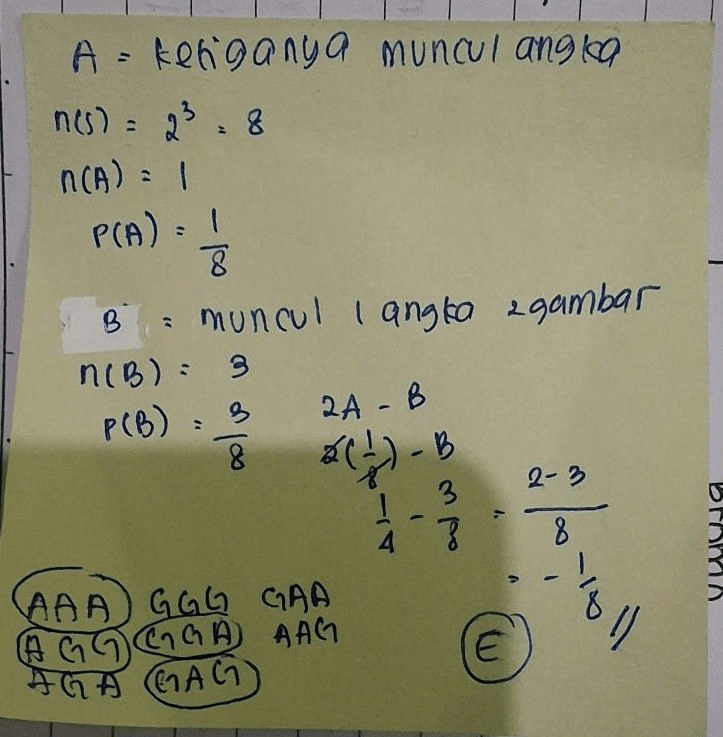 A = ketiganya muncul angka
n(S) = 2³ = 8
n(A) = 1
P(A) = 1/8
B = muncul 1 angka 2 gambar
n(B) = 3
P(B) = 3/8
2A - B
2(1/8) - B
1/4 - 3/8 = (2-3)/8
= - 1/8 //
AAA GGG GAA
AGG GGA AAG
AGA GAG
E